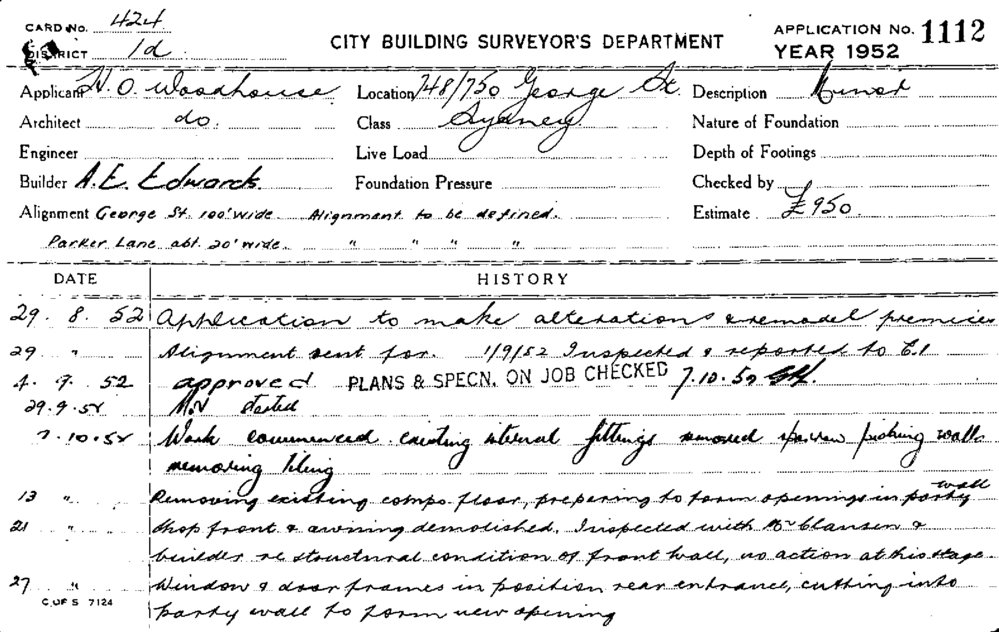 CARD No. 424
DISTRICT 1d
CITY BUILDING SURVEYOR'S DEPARTMENT
APPLICATION No. 1112
YEAR 1952
Applicant H. O. Woodhouse Location 748/750 George St. Description Minor
Architect do. Class Sydney Nature of Foundation
Engineer Live Load Depth of Footings
Builder A.E. Edwards. Foundation Pressure Checked by
Alignment George St. 100' wide Alignment to be defined. Estimate £950.
Parker Lane abt. 20' wide. " " " "
DATE HISTORY
29. 8. 52 Application to make alterations & remodel premises
29 " Alignment sent for. 1/9/52 Inspected & reported to C.I
4. 9. 52 approved PLANS & SPECN. ON JOB CHECKED 7.10.52
29.9.52 Not started
7.10.52 Work commenced existing internal fittings removed picking walls
removing tiling
13 " Removing existing compo. floor, preparing to form openings in party wall
21 " Shop front & awning demolished. Inspected with Mr Clansen &
builder re structural condition of front wall, no action at this stage
27 " Window & door frames in position rear entrance, cutting into
party wall to form new opening
C. OF S 7124